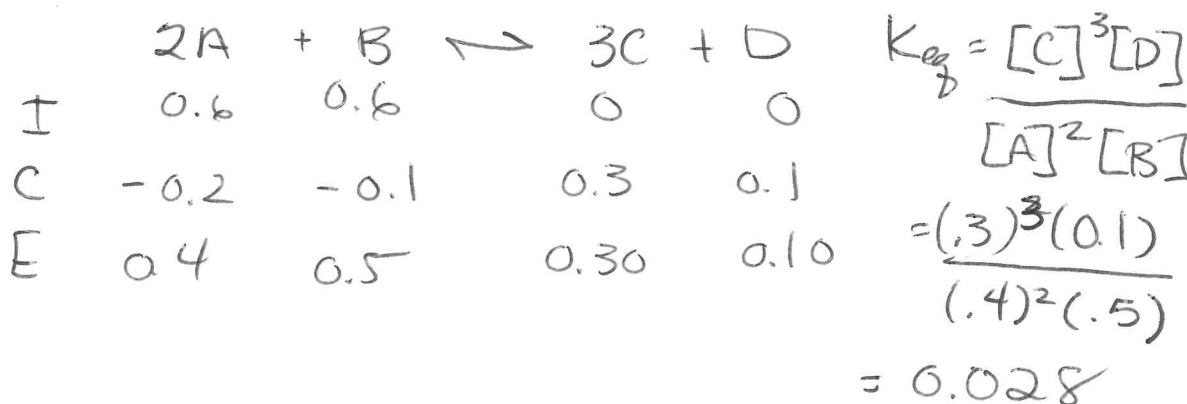 2A + B ⇌ 3C + D
I 0.6 0.6 0 0
C -0.2 -0.1 0.3 0.1
E 0.4 0.5 0.30 0.10
Keq = [C]³[D]
[A]²[B]
= (.3)³(0.1)
(.4)²(.5)
= 0.028